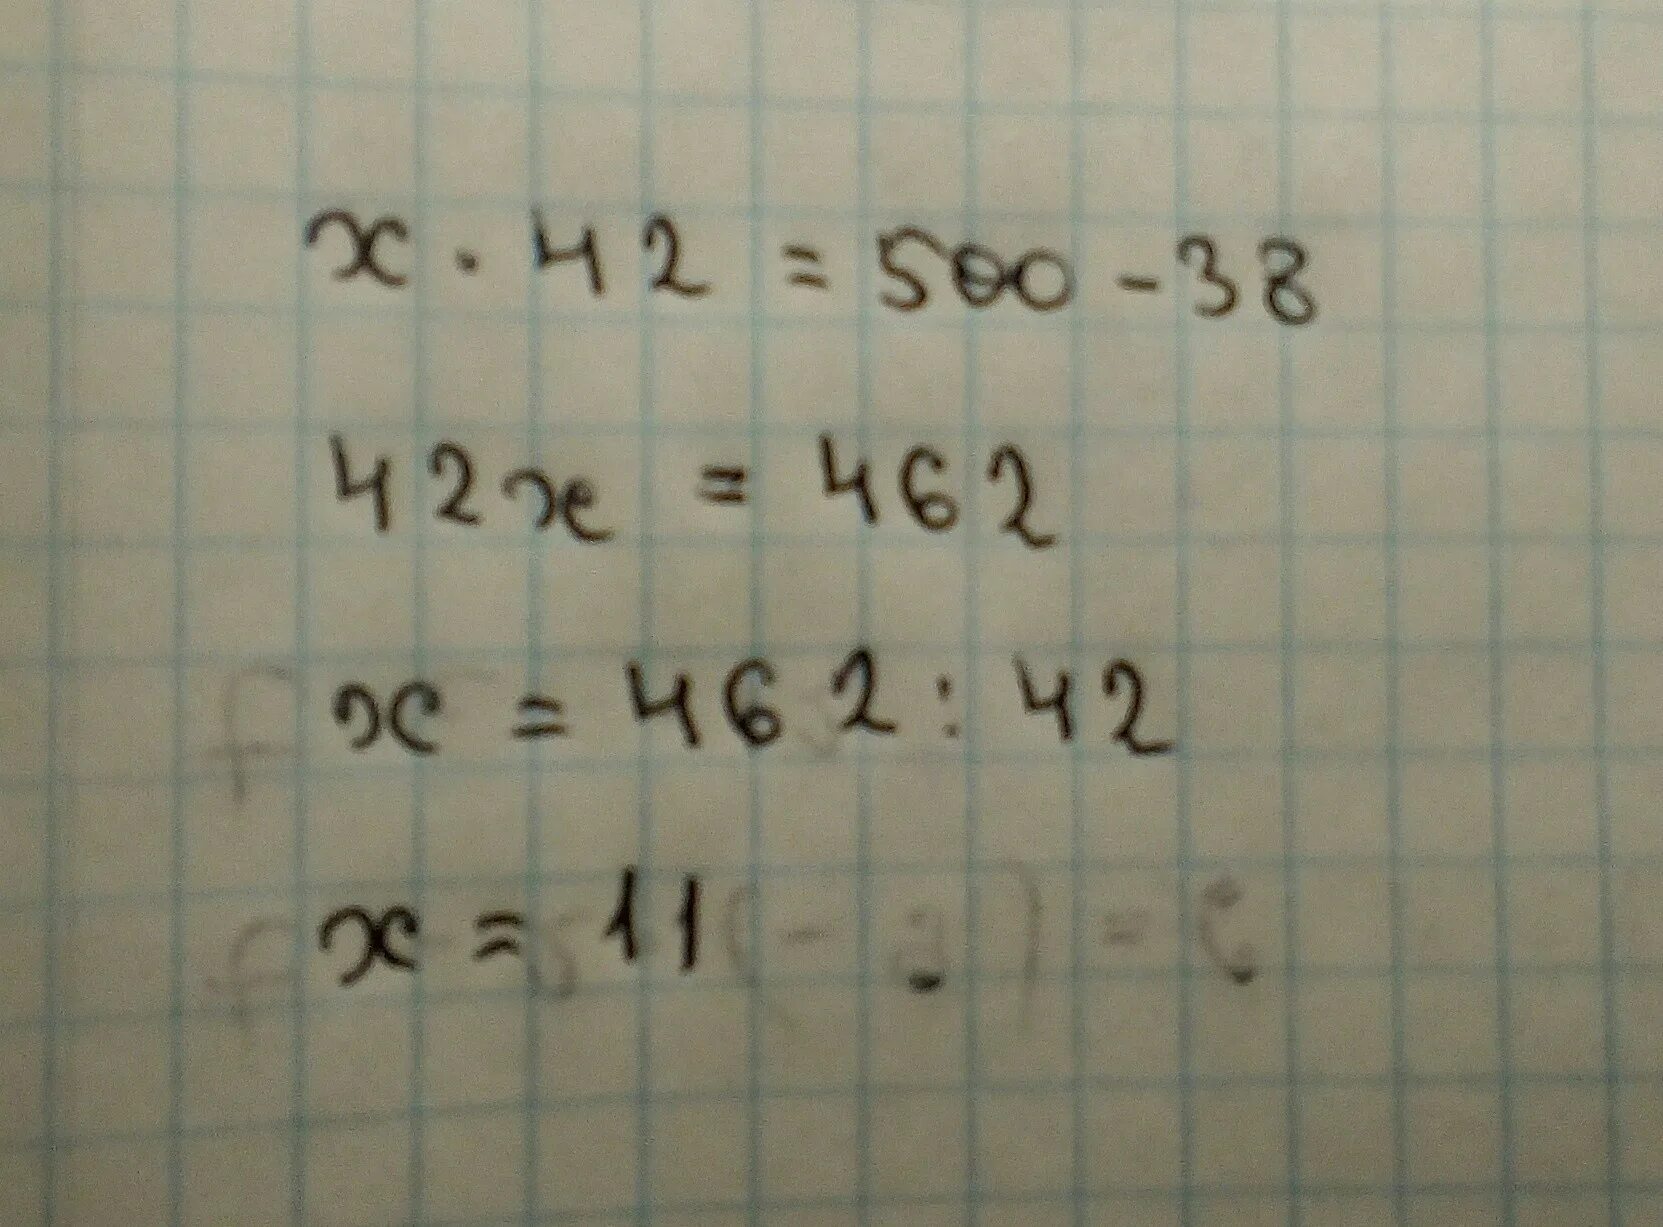 x · 42 = 500 - 38
42x = 462
x = 462 : 42
x = 11